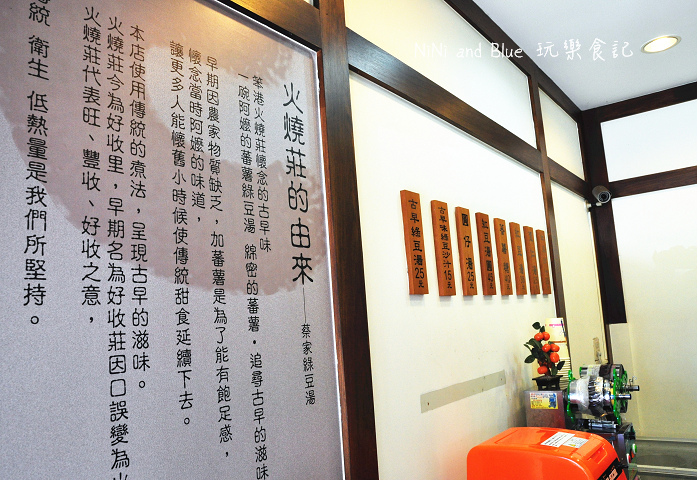 NiNi and Blue 玩樂食記
火燒莊的由來──蔡家綠豆湯
笨港火燒莊懷念的古早味
一碗阿嬤的蕃薯綠豆湯 綿密的蕃薯。追尋古早的滋味
早期因農家物質缺乏，加蕃薯是為了能有飽足感，
懷念當時阿嬤的味道，
讓更多人能懷舊小時候使傳統甜食延續下去。
本店使用傳統的煮法，呈現古早的滋味。
火燒莊今為好收里，早期名為好收莊因口誤變為火
火燒莊代表旺、豐收、好收之意，
傳統 衛生 低熱量是我們所堅持。
古早綠豆湯25元
古早味綠豆沙汁15元
圓仔湯25元